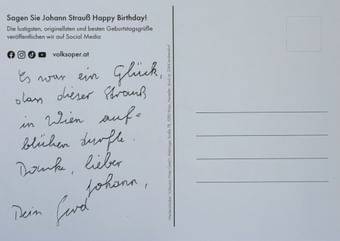 Sagen Sie Johann Strauß Happy Birthday!
Die lustigsten, originellsten und besten Geburtstagsgrüße
veröffentlichen wir auf Social Media
volksoper.at
Es war ein Glück,
dass dieser Strauß
in Wien auf-
blühen durfte.
Danke, lieber
Johann,
Dein Gerd